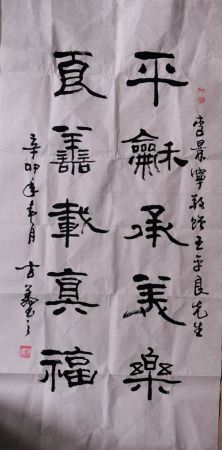 平龢承美樂
良譱載真福
李景寧敬贈王平良先生
辛卯年